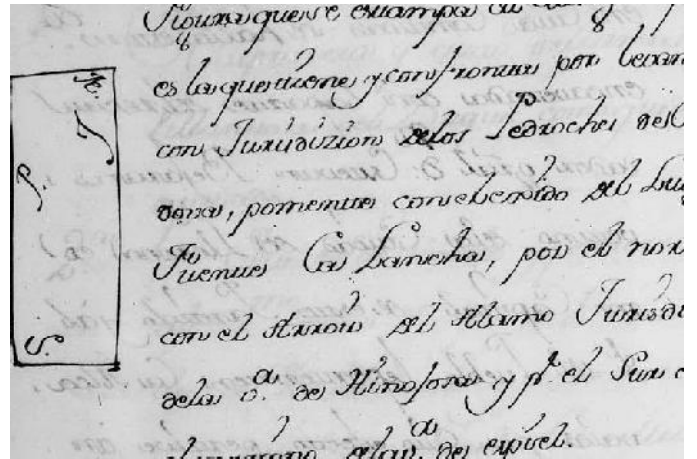 figura que se estampa al
es la que tiene y confronta por levan
con Juridizion de los Pedroches de C
dova, poniente con el exido del Lug
Fuente La Lancha, por el nor
con el Arroio del Alamo Jurisdi
de la v.ª de Hinojosa y p.r el Sur c
a la v.ª de espiel.
N.
J
P.
S.